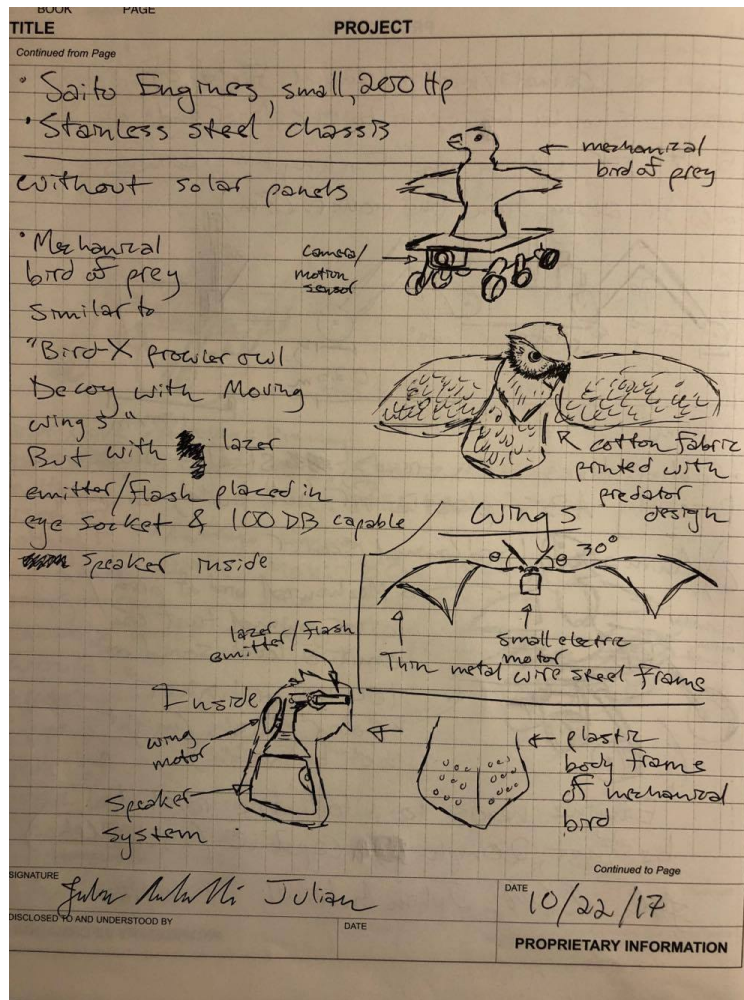 BOOK PAGE
TITLE PROJECT
Continued from Page
• Saito Engines, small, 200 Hp
• Stainless steel chassis
without solar panels
← mechanical
bird of prey
camera/
motion
sensor
• Mechanical
bird of prey
similar to
"Bird-X prowler owl
Decoy with Moving
wings"
But with lazer
emitter/Flash placed in
eye socket & 100 DB capable
speaker inside
cotton fabric
printed with
predator
design
Wings
θ θ 30°
small electric
motor
Thin metal wire steel frame
lazer
emitter/flash
Inside
wing
motor
Speaker
system
← plastic
body frame
of mechanical
bird
Continued to Page
SIGNATURE Julian
DATE 10/22/17
DISCLOSED TO AND UNDERSTOOD BY
DATE
PROPRIETARY INFORMATION